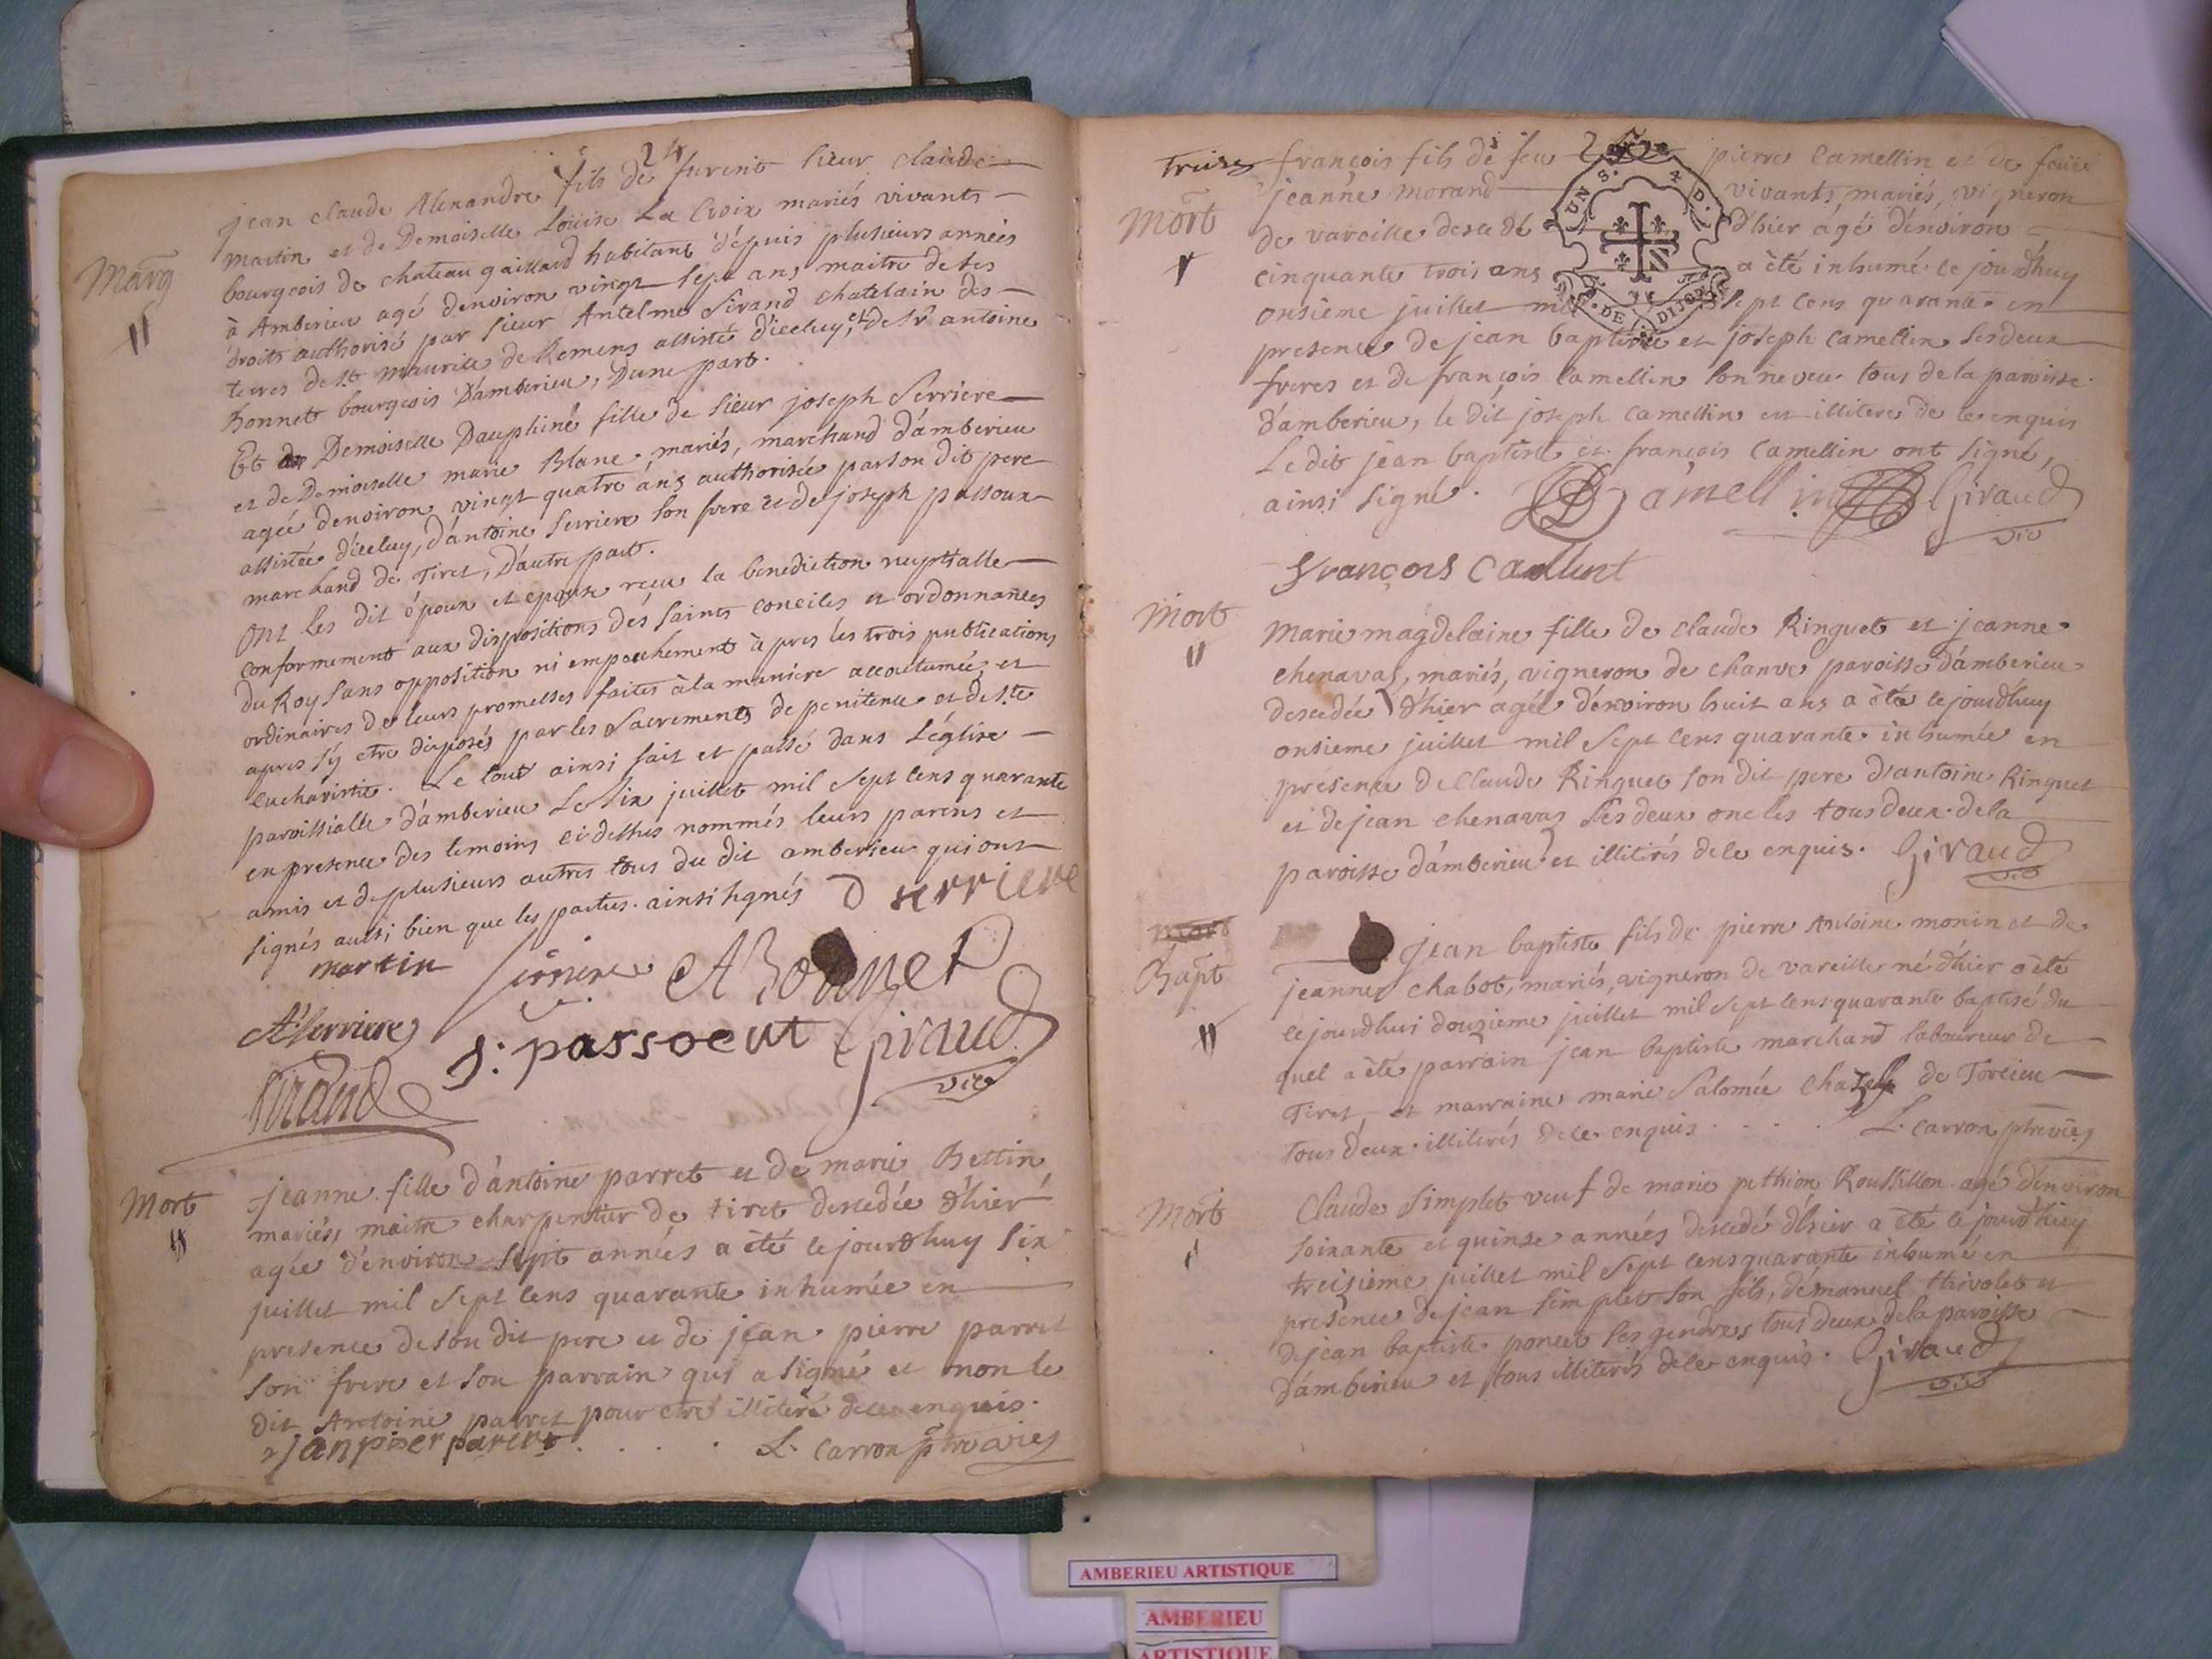 24
Marg
jean claude Alexandre fils de furent sieur claude
martin et de Demoiselle Louise La Croix mariés vivants
bourgeois de chateau gaillard habitant dépuis plusieurs années
à Amberieu agé denviron vingt sept ans maitre de ses
droits authorisé par sieur Antelme Sirand chatelain des
terres de st maurice de Remens assisté d'iceluy, et de sr antoine
Bonnet bourgeois D'amberieu, Dune part.
Et Demoiselle Dauphine fille de sieur joseph Serriere
et de Demoiselle marie Blanc, mariés, marchand d'amberieu
agée denviron vingt quatre ans authorisée par son dit pere
assistée d'iceluy, d'antoine Serriere son frere et de joseph passoux
marchand de Tiret, D'autre part.
Ont les dit époux et epouse reçu la benediction nuptialle
conformement aux dispositions dés saints conciles et ordonnances
du Roy sans opposition ni empechement à pres les trois publications
ordinaires de leurs promesses faites à la maniere accoutumée, et
apres s'y etre disposés par les Sacrements de penitence et de ste
eucharistie. Le tout ainsi fait et passé dans L'église
paroissialle d'amberieu Le six juillet mil sept cens quarante
en presence des temoins ci dessus nommés leurs parens et
amis et de plusieurs autres tous du dit amberieu qui ont
signés aussi bien que les parties. ainsi signés D serriere
martin Serriere A Bonnet
A Serriere J: passoeut Giraud vic
Sirand
Mort
jeanne fille d'antoine parret et de marie Bettin
mariés, maitre charpentier de tiret descedée d'hier
agée d'environ sept années a èté cejourdhuy six
juillet mil sept cens quarante inhumée en
presence de son dit pere et de jean pierre parret
son frere et son parrain qui a signé et non le
dit Antoine parret pour etre illiteré dece enquis.
janpier pareret L. Carron ptre vic
Mort
françois fils de feu pierre Camellin et de feüe
jeanne morand vivants, mariés, vigneron
de vareille descedé d'hier agé d'environ
cinquante trois ans a èté inhumé ce jourd'huy
onsieme juillet mil sept cens quarante en
presence de jean baptiste et joseph Camellin ses deux
freres et de françois Camellin son neveu tous de la paroisse
d'amberieu, le dit joseph Camellin est illiteré de ce enquis
Le dit jean baptiste et françois Camellin ont signé,
ainsi signé. Camellin Giraud vic
françois
Mort
Marie magdelaine fille de claude Ringuet et jeanne
chenavas, mariés, vigneron de chanve paroisse d'amberieu
descedée d'hier agée d'environ huit ans a èté cejourdhuy
onsieme juillet mil sept cens quarante inhumée en
présence de Claude Ringuet son dit pere d'antoine Ringuet
et de jean chenavas ses deux oncles tous deux de la
paroisse d'amberieu et illiterés dece enquis. Giraud vic
Bapt
jean baptiste fils de pierre Antoine monin et de
jeanne chabot, mariés, vigneron de vareille né d'hier a èté
cejourdhui douzieme juillet mil sept cens quarante baptisé du
quel a èté parrain jean baptiste marchand laboureur de
Tiret, et marraine marie Salomée de Torcieu
tous deux illiterés dece enquis. L. Carron ptre vic
Mort
Claude Simplet veuf de marie pethion Roussillon agé d'environ
soixante et quinse années descedé d'hier a èté cejourdhuy
treisieme juillet mil sept cens quarante inhumé en
presence de jean simplet son fils, d'emanuel thivolet et
de jean baptiste poncet ses gendres tous deux de la paroisse
d'amberieu et tous illiterés dece enquis. Giraud vic
GEN. DE DIJON
AMBERIEU ARTISTIQUE
AMBERIEU
ARTISTIQUE